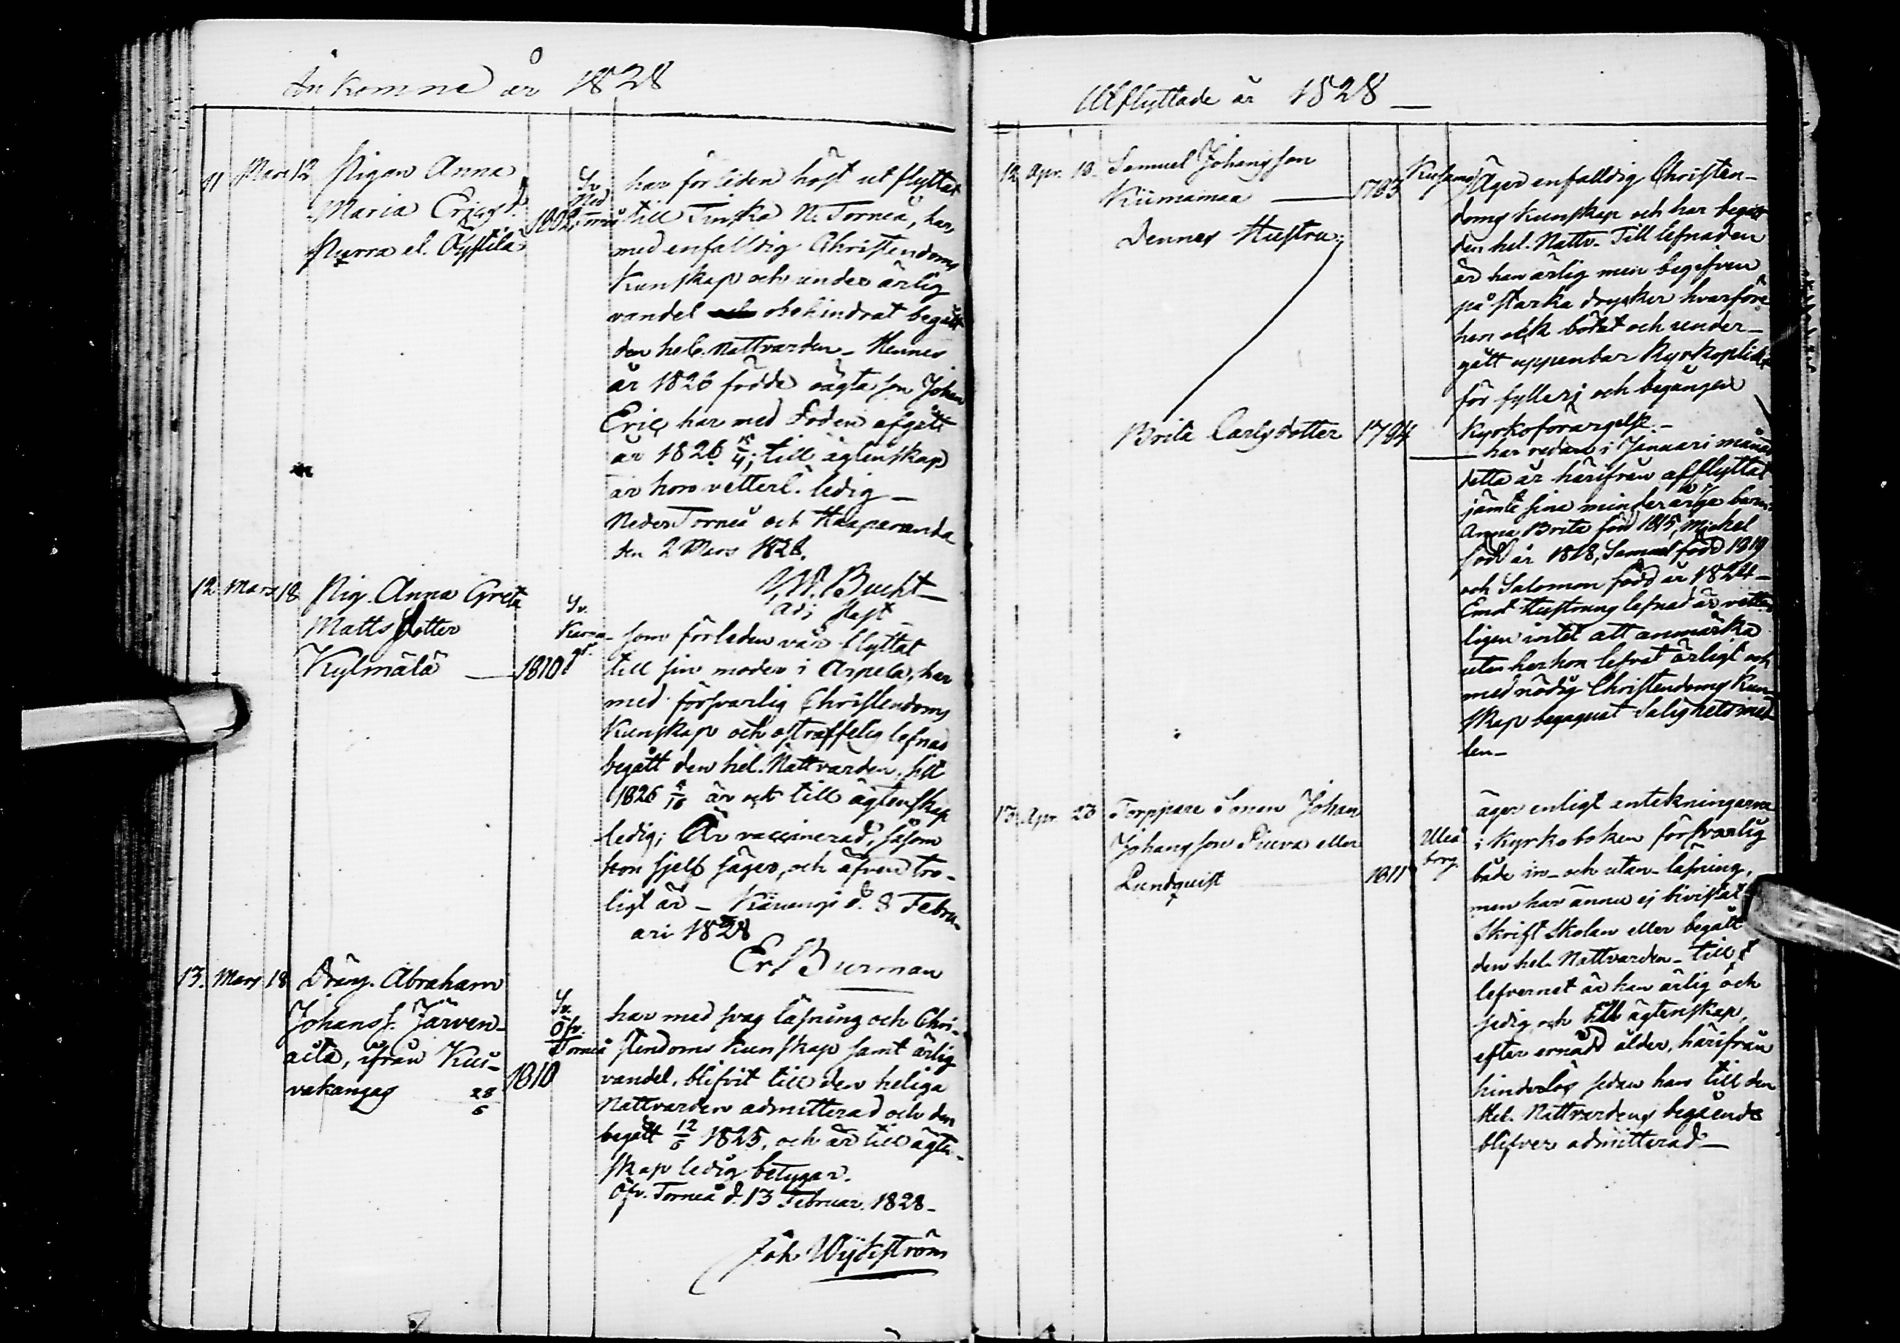 Ankomne år 1828
11 Mars 12 Pigan Anna
Maria Ericsd.
Purra el. Öystilä
1802
Sv.
Ned.
Torneå
har förleden höst utflyttat
till Finska N. Torneå, har
med enfaldig Christendoms
Kunskap och under ärlig
vandel obehindrat begått
den hel. Nattvarden – Hennes
år 1826 födde oägta son Johan
Eric har med döden afgått
år 1826 till ägtenskap
är hon vetterl. ledig –
Neder Torneå och Haaparanda
den 2 Mars 1828.
Bucht
adj. Past
12 Mars 18 Pig. Anna Greta
Matts dotter
Kylmälä — 1810
Sv.
som förleden vår flyttat
till sin moder i Arpela, har
med försvarlig Christendoms
Kunskap och ostraffelig lefnad
begått den hel. Nattvarden, sist
1826 är ock till ägtenskap
ledig; Är vaccinerad, såsom
hon sjelf säger, och äfven tro-
ligt är – Karungi d. 8 Febru-
ari 1828
Er. Burman
13. Mars 18 Dräng. Abraham
Johanss. Järven-
ifrån Kui-
vakangas 28/6 1810
Sv.
Öfv.
Torneå
har med svag läsning och Chri-
stendoms Kunskap samt ärlig
vandel, blifvit till den heliga
Nattvarden admitterad och den
begått 12/6 1825, och är till ägten-
skap ledig betygar.
Öfv. Torneå d. 13 Februar. 1828 –
Joh. Wykström
Utflyttade år 1828 —
12 Apr. 10. Samuel Johansson
Kiimamaa — 1793
Kusamo
Dennes Hustru,
Brita Carlsdotter 1794
Äger enfalldig Christen-
doms Kunskap och har begått
den hel. Nattv. Till lefnaden
är han ärlig men begifven
på starka drycker hvarföre
han ock bötat och under-
gått uppenbar Kyrkoplikt
för fylleri och begången
Kyrkoförargelse. –
har redan i Januari månad
detta år härifrån afflyttat
jämte sine minderåriga barn:
Anna Brita född 1815, Michel
född år 1818, Samuel född 1819
och Salomon född år 1824 –
Emot Hustruns lefnad är vetter-
ligen intet att anmärka
utan har hon lefvat ärligt och
med nödig Christendoms Kun-
skap begagnat Salighetsmed-
len –
13. Apr. 23 Torppare Sonen Johan
Johansson Pieva eller
Lundqvist 1811
Uleå
borg
äger enligt antekningarna
i Kyrkoboken försvarlig
både in- och utan- läsning,
men har ännu ej bivistat
Skrift Skolan eller begått
den hel. Nattvarden – till
lefvernet är han ärlig och
sedig och till ägtenskap,
efter ernådd ålder, härifrån
hinderlös sedan han till den
Hel. Nattvardens begående
blifver admitterad –